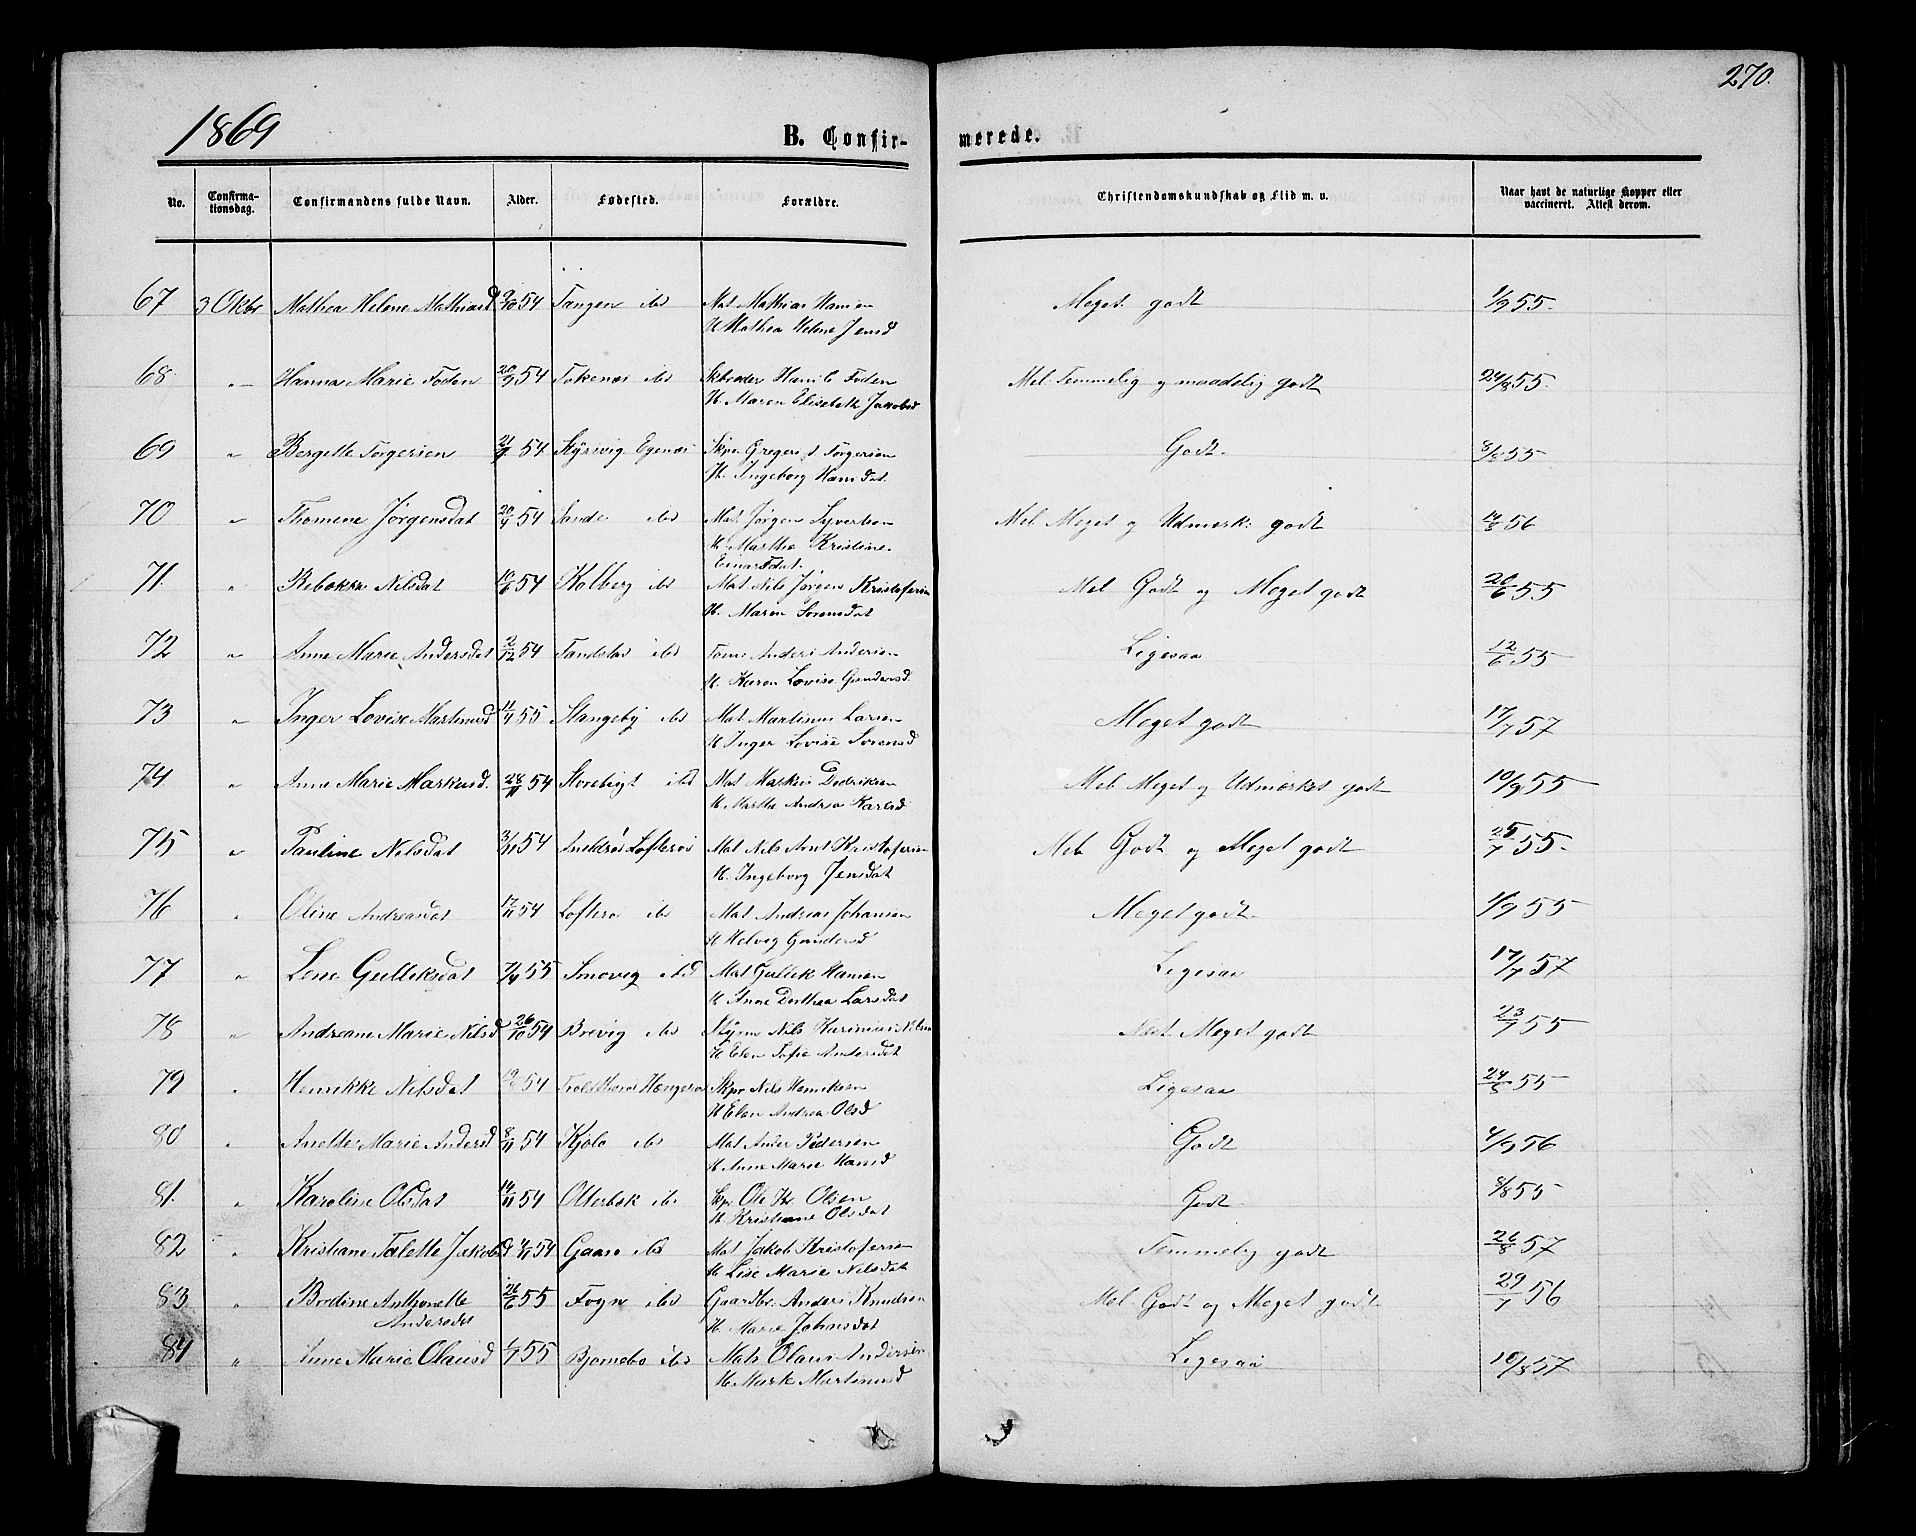 270.
1869
B. Confir- merede.
No. Confirma-tionsdag. Confirmandens fulde Navn. Alder. Fødested. Forældre. Christendomskundskab og Flid m. v. Naar havt de naturlige Kopper eller vaccineret. Attest derom.
67 3 Oktbr Mathea Helene Mathiasd 9/10 54 Tangen ibd Mat Mathias Hansen Meget godt 1/9 55.
H Mathea Helene Jensd
68 Hanna Marie Foden 20/9 54 Hans C Foden Mel. Temmelig og maadelig godt 24/8 55.
H. Maren Elisabeth Jakobsd
69 " Bergette Torgersen 54 Skpr Gregers Torgersen Godt. 8/8 55
H. Ingeborg Hansdat.
70 " Thomene Jørgensdat 54 Sande ibd Mat. Jørgen Syvertsen Mel. Meget og Udmærk: godt 56
H. Marthe Kristine.
Einarsdat.
71. " Rebekka Nilsdat 54 Kolberg ibd Mat Nils Jørgen Kristofersen Mel Godt og Meget godt 26/6 55
H. Maren Sorensdat
72 " Anne Marie Andersdat 2/12 54 ibd Anders Andersen Ligesaa 12/6 55
H. Karen Lovise Gundersd.
73 " Inger Lovise Martinusd 11/4 55 Stangeby ibd Mat Martinus Larsen Meget godt 17/7 57
H Inger Lovise Sorensd
74 " Anne Marie Markusd. 28/11 54 ibd Mat Markus Dedriksen Mel Meget og Udmærket godt 10/9 55
H. Marthe Andrea Karlsd
75 " Pauline Nilsdat 3/11 54 Mat Nils Arnt Kristofersen Mel Godt og Meget godt 25/7 55.
H. Ingeborg Jensdat
76 " Oline Andreasdat 17/11 54 ibd Mat Andreas Johansen Meget godt. 1/9 55
H Helvig Gundersd
77 " Lene Gulliksdat 7/4 55 Smovig ibd Mat Gullik Hansen Ligesaa 17/7 57
H. Anne Dorthea Larsdat
78 " Andreane Marie Nilsd 26/10 54 Brevig ibd Nils Nilsen Næst Meget godt 23/7 55
H Elen Sofie Andersdat
79 " Henrikke Nilsdat 54 Skpr Nils Henriksen Ligesaa 24/8 55
H Elen Andrea Olsd
80 " Anette Marie Andersd 8/11 54 Kjøle ibd Mat Anders Pedersen Godt 4/9 56
H Anne Marie Hansd
81. " Karoline Olsdat 19/11 54 Otterbæk ibd Skpr Ole Olsen Godt 8/8 55
H. Kristiane Olsdat
82 " Kristiane Talette Jakobsd 54 ibd Mat Jakob Kristofersen Temmelig godt 26/8 57
H. Lise Marie Nilsdat
83 " Bredine Anthonette 26/6 55 Fogn ibd Gaardbr. Anders Knudsen Mel. Godt og Meget godt 29/7 56
Andersdat H. Marie Johnsdat
84 " Anne Marie Olausd 55 Bjørnebo ibd Mat. Olaus Andersen Ligesaa 10/8 57
H. Martinusd